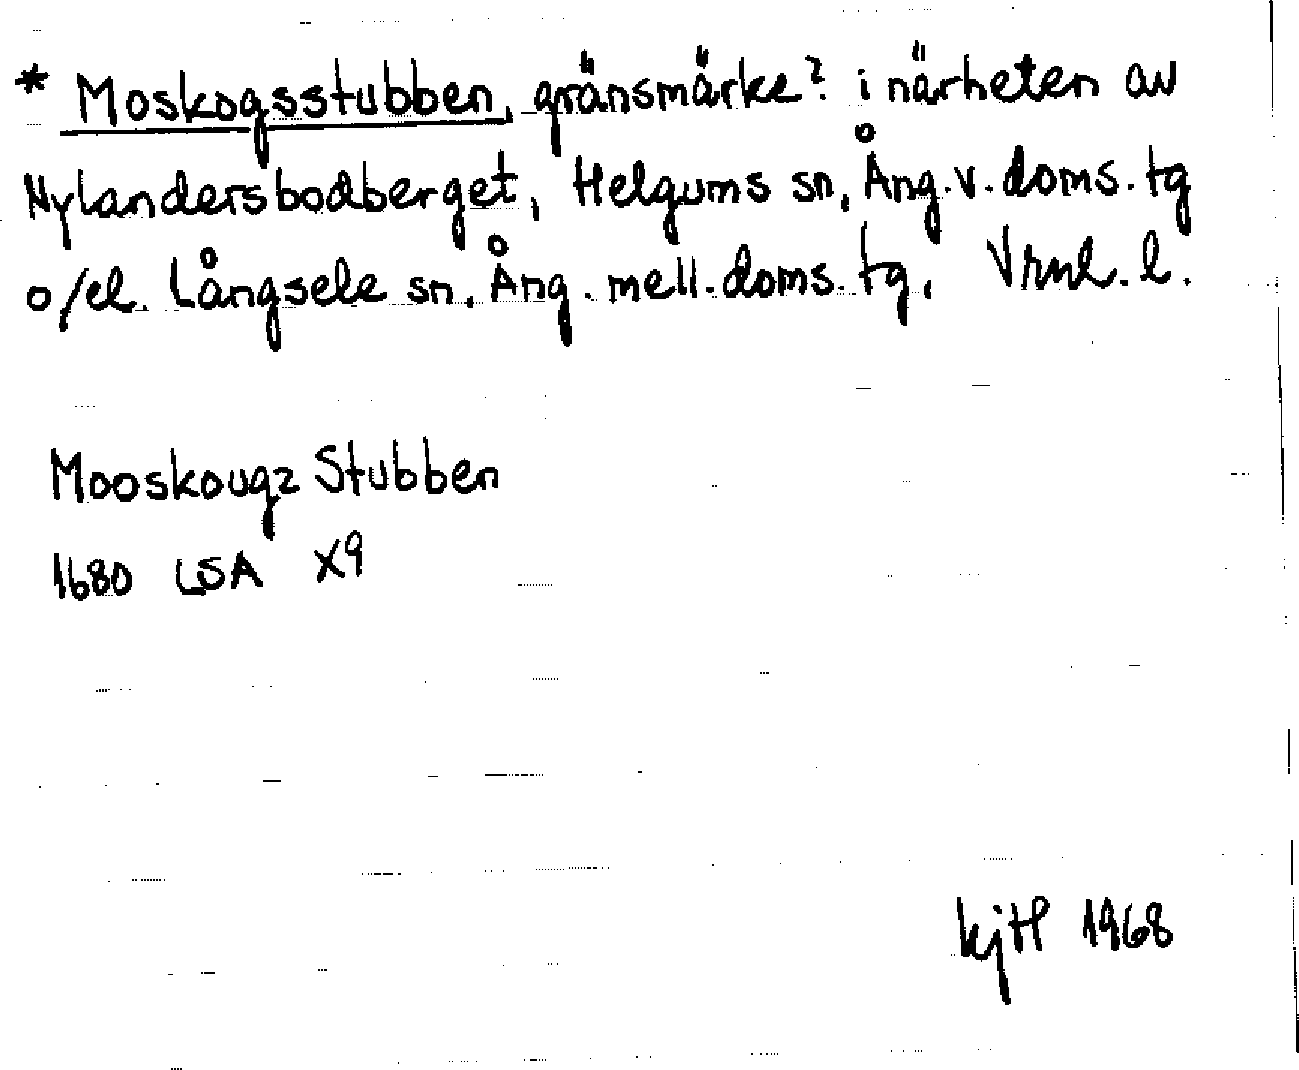 * Moskogsstubben, gränsmärke? i närheten av
Nylandersbodberget, Helgums sn, Ång. v. doms. tg
o/el. Långsele sn, Ång. mell. doms. tg, Vrnl. l.
Mooskougz Stubben
1680 LSA X9
kjH 1968